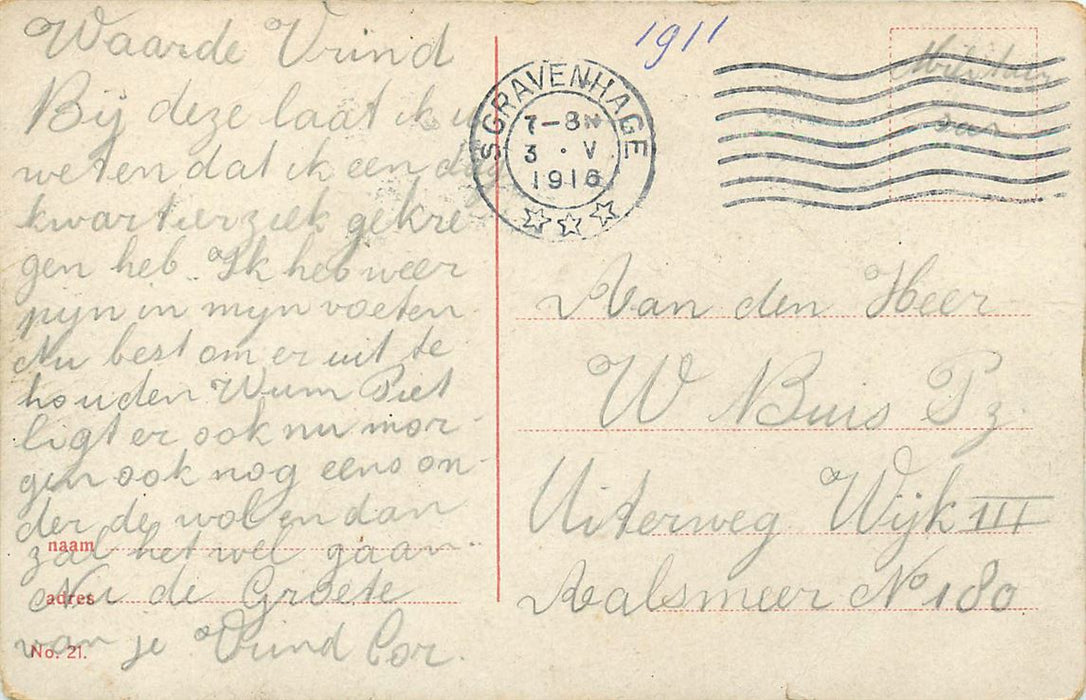 Waarde Vrind
Bij deze laat ik u
weten dat ik een dag
kwartierziek gekre
gen heb. Ik heb weer
pijn in mijn voeten.
Nu best om er uit te
houden Wum Piet
ligt er ook nu mor-
gen ook nog eens on-
der de wol en dan
zal het wel gaan.
Nu de Groete
van je Vrind Cor.
naam
adres
No. 21.
1911
SGRAVENHAGE
7-8N
3 · V
1916
Militair
Aan den Heer
W Buis Pz.
Uiterweg Wijk III
Aalsmeer No 180